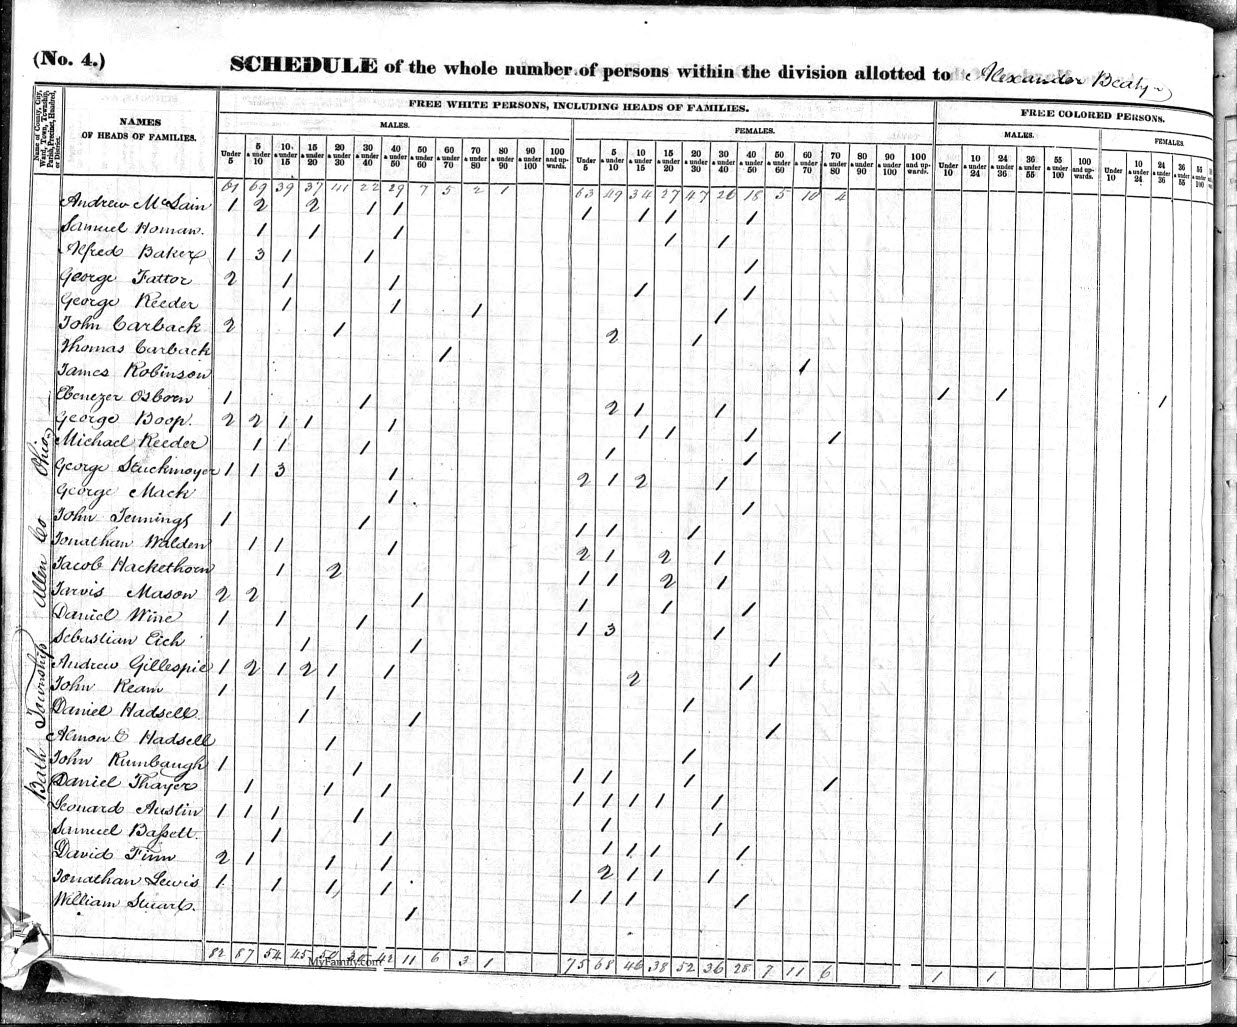 (No. 4.) SCHEDULE of the whole number of persons within the division allotted to Alexander Beaty
Name of County, City, Ward, Town, Township, Parish, Precinct, Hundred, or District.
NAMES OF HEADS OF FAMILIES.
FREE WHITE PERSONS, INCLUDING HEADS OF FAMILIES.
FREE COLORED PERSONS.
MALES. FEMALES. MALES. FEMALES.
Under 5 5 & under 10 10 & under 15 15 & under 20 20 & under 30 30 & under 40 40 & under 50 50 & under 60 60 & under 70 70 & under 80 80 & under 90 90 & under 100 100 and upwards. Under 5 5 & under 10 10 & under 15 15 & under 20 20 & under 30 30 & under 40 40 & under 50 50 & under 60 60 & under 70 70 & under 80 80 & under 90 90 & under 100 100 and upwards. Under 10 10 & under 24 24 & under 36 36 & under 55 55 & under 100 100 and upwards. Under 10 10 & under 24 24 & under 36 36 & under 55 55 & under 100
61 69 39 37 41 22 29 7 5 2 1 63 49 34 27 47 26 18 5 10 4
Andrew McLain 1 2 2 1 1 1 1 1 1
Samuel Homan. 1 1 1 1 1
Alfred Baker 1 3 1 1 1
George Fattor 2 1 1 1 1
George Reeder 1 1 1 1
John Carback 2 1 2 1
Thomas Carback 1 1
James Robinson 1 1 1
Ebenezer Osborn 1 1 2 1 1
George Boop. 2 2 1 1 1 1 1 1 1
Michael Reeder 1 1 1 1 1
George Stuckmoyer 1 1 3 1 2 1 2 1
George Mack 1 1
John Jennings 1 1 1 1 1
Jonathan Walden 1 1 1 2 1 2 1
Jacob Hackethorn 1 2 1 1 2 1
Jarvis Mason 2 2 1 1 1 1
Daniel Wine 1 1 1 1 3 1
Sebastian Eich 1 1 1
Andrew Gillespie 1 2 1 2 1 1 2 1
John Ream 1 1 1
Daniel Hadsell 1 1 1
Almon E Hadsell 1 1
John Rumbaugh 1 1 1 1 1 1
Daniel Thayer 1 1 1 1 1 1 1 1
Leonard Austin 1 1 1 1 1 1
Samuel Bassett. 1 1 1 1 1 1
David Finn 2 1 1 1 2 1 1 1
Jonathan Lewis 1 1 1 1 1 1 1 1
William Stuart. 1
82 87 54 45 50 42 11 6 3 1 75 68 46 38 52 36 7 11 6 1 1
Bath Township Allen Co Ohio
MyFamily.com